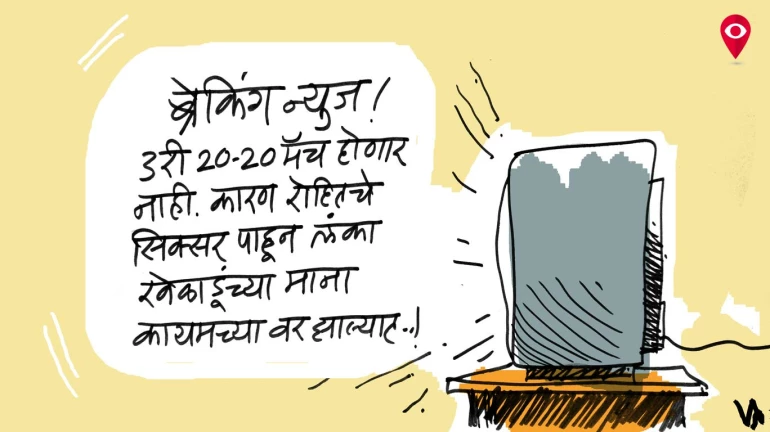 ब्रेकिंग न्युज!
3री 20-20 मॅच होणार
नाही. कारण रोहितचे
सिक्सर पाहून लंका
खेळाडूंच्या माना
कायमच्या वर झाल्यात..!